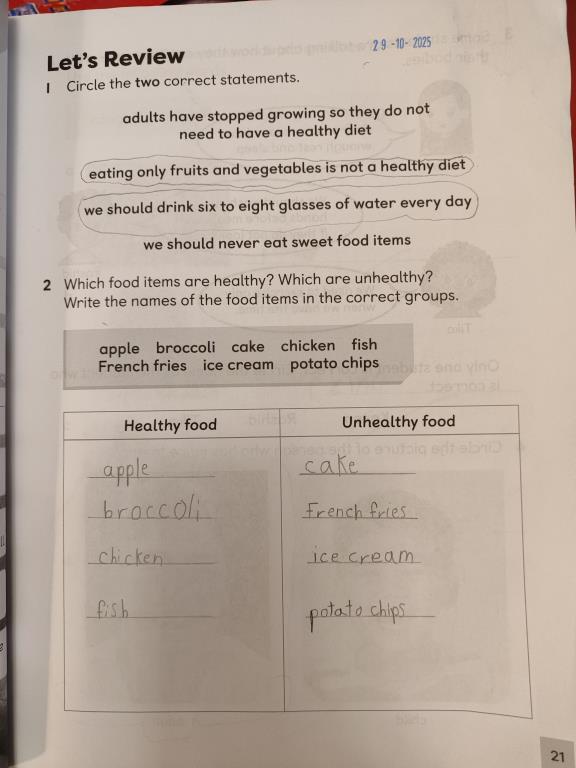 29-10-2025
Let's Review
1 Circle the two correct statements.
adults have stopped growing so they do not
need to have a healthy diet
eating only fruits and vegetables is not a healthy diet
we should drink six to eight glasses of water every day
we should never eat sweet food items
2 Which food items are healthy? Which are unhealthy?
Write the names of the food items in the correct groups.
apple broccoli cake chicken fish
French fries ice cream potato chips
Healthy food Unhealthy food
apple cake
broccoli French fries
chicken ice cream
fish potato chips
21